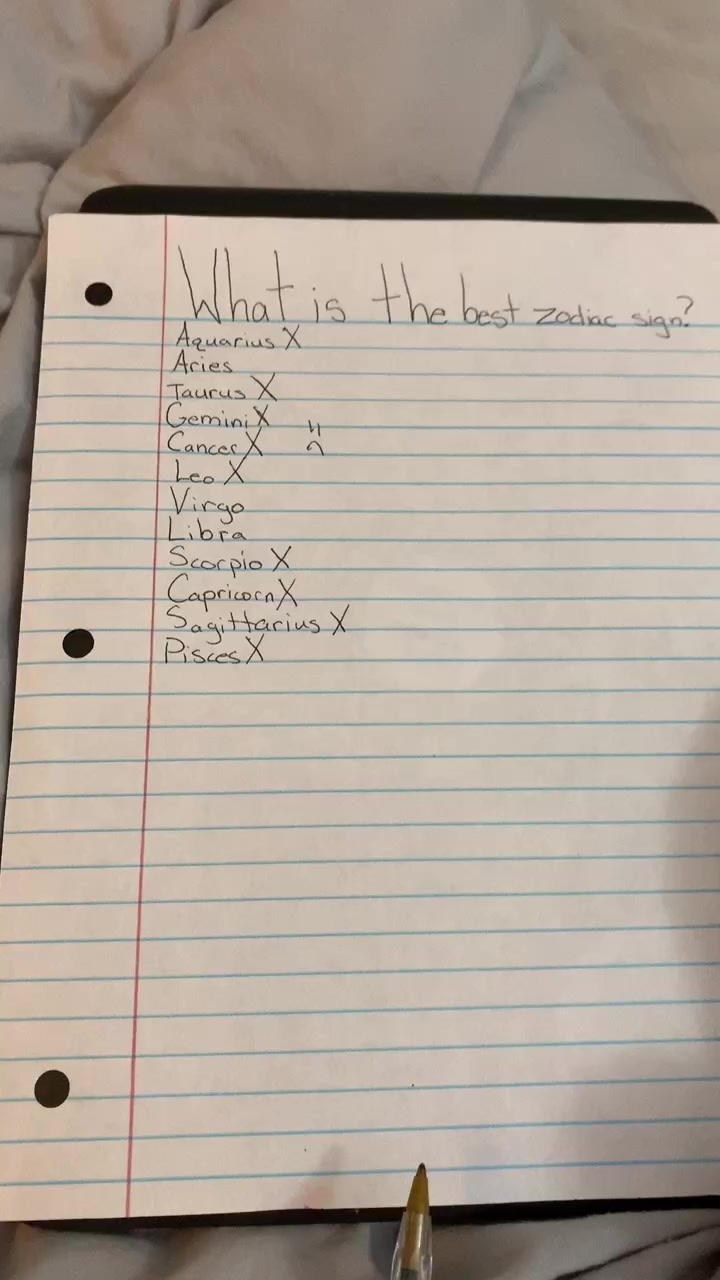 What is the best zodiac sign?
Aquarius X
Aries
Taurus X
Gemini X
Cancer X
Leo X
Virgo
Libra
Scorpio X
Capricorn X
Sagittarius X
Pisces X